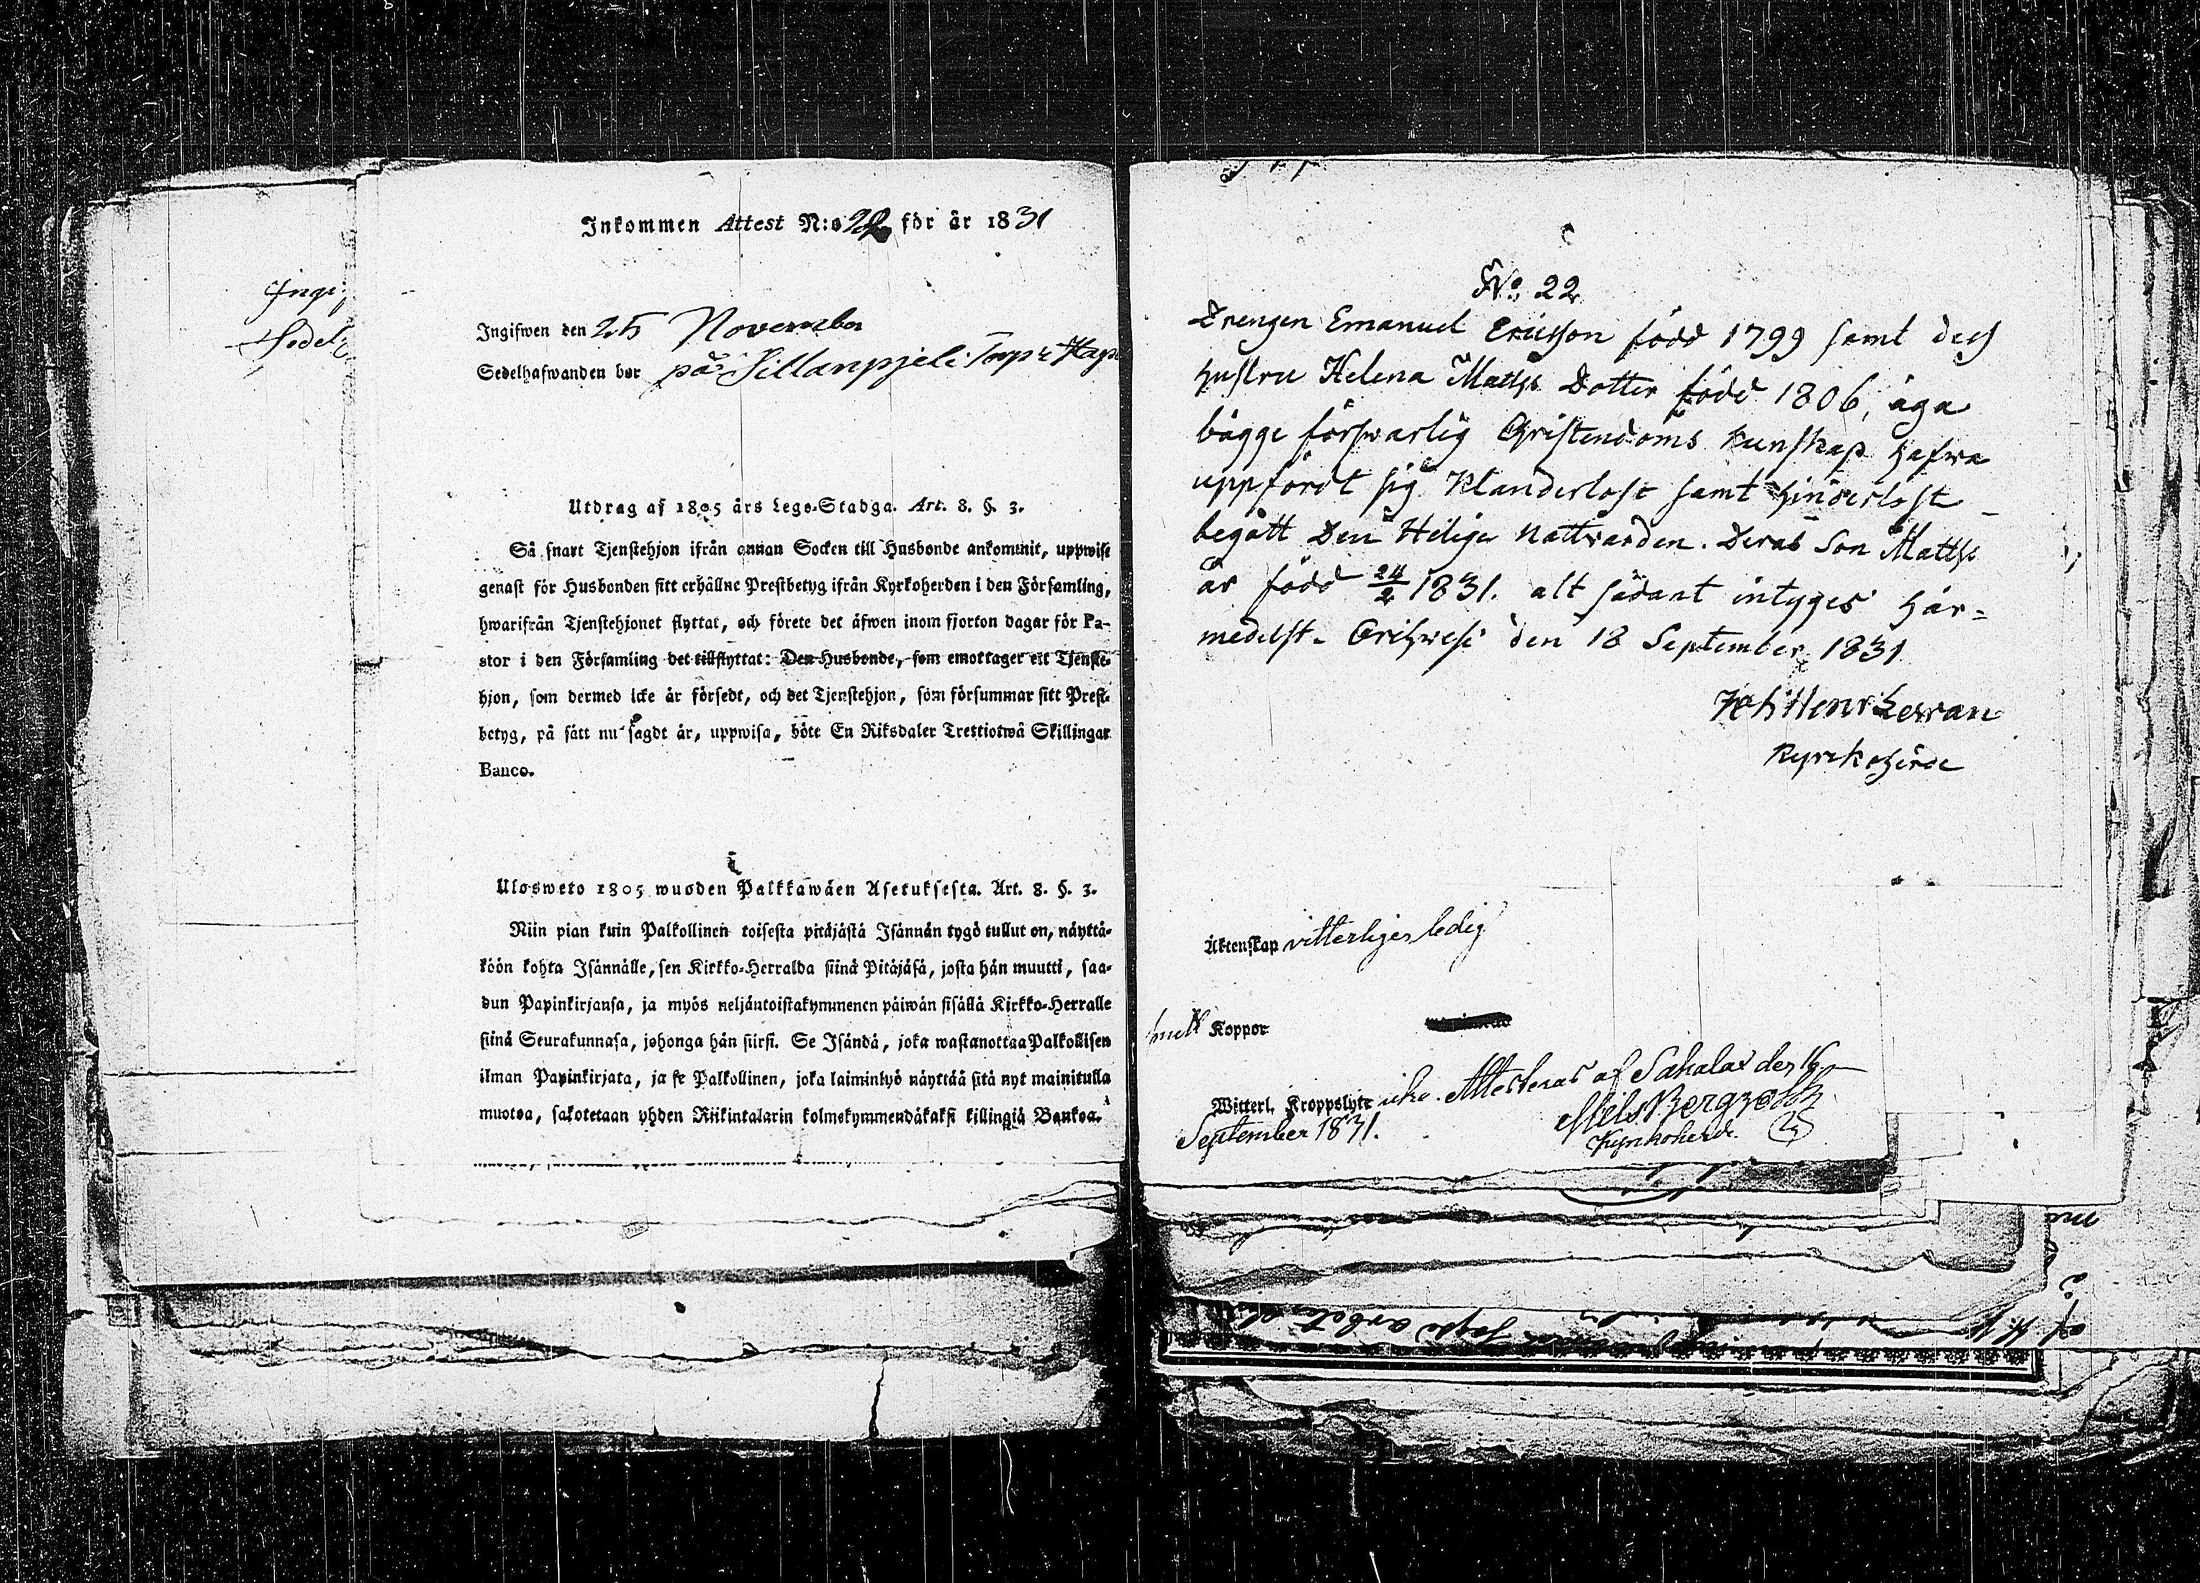 Inkommen Attest N:o 22 för år 1831
Ingifwen den 25 November
Sedelhafwanden bor på Sillanpjeli Torp i
Utdrag af 1805 års Lego-Stadga. Art. 8. §. 3.
Så snart Tjenstehjon ifrån annan Socken till Husbonde ankommit, uppwise
genast för Husbonden sitt erhållne Prestbetyg ifrån Kyrkoherden i den Församling,
hwarifrån Tjenstehjonet flyttat, och förete det äfwen inom fjorton dagar för Pa-
stor i den Församling det tillflyttat: Den Husbonde, som emottager ett Tjenste-
hjon, som dermed icke är försedt, och det Tjenstehjon, som försummar sitt Prest-
betyg, på sätt nu sagdt är, uppwisa, böte En Riksdaler Trettiotwå Skillingar
Banco.
Ulosweto 1805 wuoden Palkkawäen Asetuksesta. Art. 8. §. 3.
Niin pian kuin Palkollinen toisesta pitäjästä Isännän tygö tullut on, näyttä-
köön kohta Isännälle, sen Kirkko-Herralda siinä Pitäjäsä, josta hän muutti, saa-
dun Papinkirjansa, ja myös neljäntoistakymmenen päiwän sisällä Kirkko-Herralle
siinä Seurakunnasa, johonga hän siirsi. Se Isändä, joka wastanottaa Palkollisen
ilman Papinkirjata, ja se Palkollinen, joka laiminlyö näyttää sitä nyt mainitulla
muotoa, sakotetaan yhden Riikintalarin kolmekymmendäkaksi killingiä Bankoa.
Ingi
Sedel
No. 22
Drengen Emanuel Ericsson född 1799 samt dess
hustru Helena Matts Dotter född 1806, äga
bägge förswarlig Christendoms kunskap hafwa
uppfördt sig Klanderlöst samt hinderlöst
begått Den Heliga Nattvarden. Deras Son Matts
är född 24/2 1831. alt sådant intygas här-
medelst. Orihwesi den 18 September 1831
Joh Henr Lewan
Kyrkoherde
Äktenskap vitterligen ledig
Koppor
Witterl. Kroppslyte icke. Attesteras af Sahalax den 16
September 1831.
Kyrkoherde.